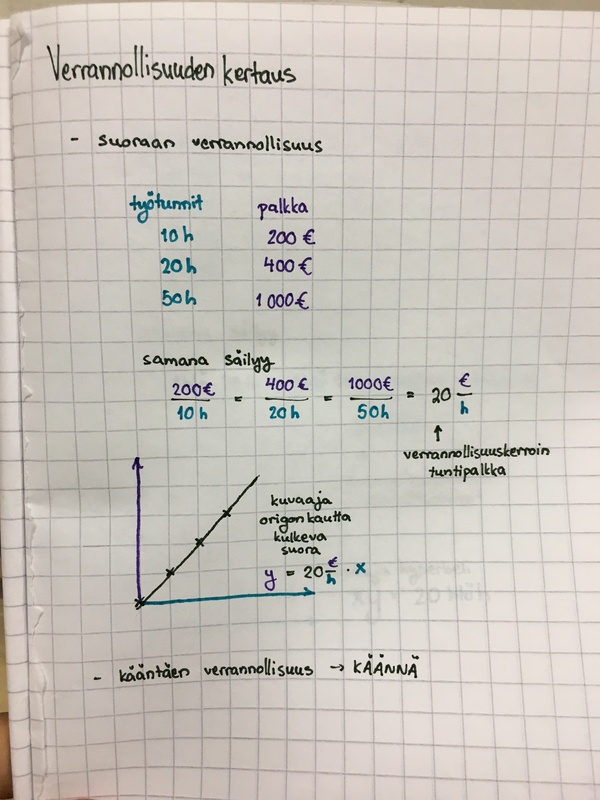 Verrannollisuuden kertaus
- suoraan verrannollisuus
työtunnit palkka
10 h 200 €
20 h 400 €
50 h 1 000 €
samana säilyy
200€/10 h = 400 €/20 h = 1000€/50 h = 20 €/h
↑
verrannollisuuskerroin
tuntipalkka
kuvaaja
origon kautta
kulkeva
suora
y = 20 €/h · x
- kääntäen verrannollisuus → KÄÄNNÄ